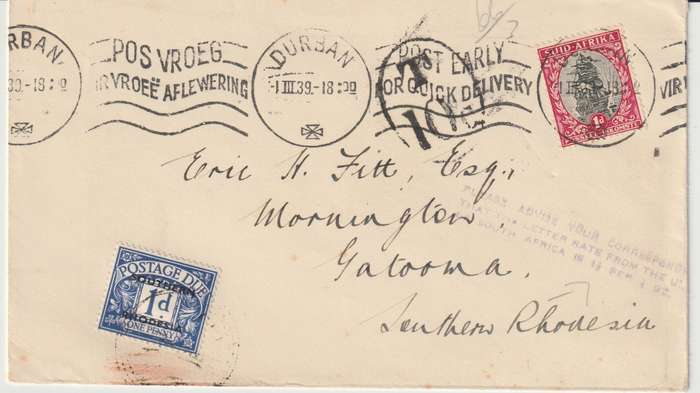 DURBAN
39.-18 30
POS VROEG
VIR VROEË AFLEWERING
DURBAN
1 III 39.-18 30
POST EARLY
FOR QUICK DELIVERY
T
10c
SUID-AFRIKA
1d
VIR
Eric H. Fitt, Esq.,
Mornington,
Gatooma,
Southern Rhodesia
PLEASE ADVISE YOUR CORRESPONDE
THAT THE LETTER RATE FROM THE U
SOUTH AFRICA IS PER 1 OZ.
POSTAGE DUE
SOUTHERN
1d
RHODESIA
ONE PENNY